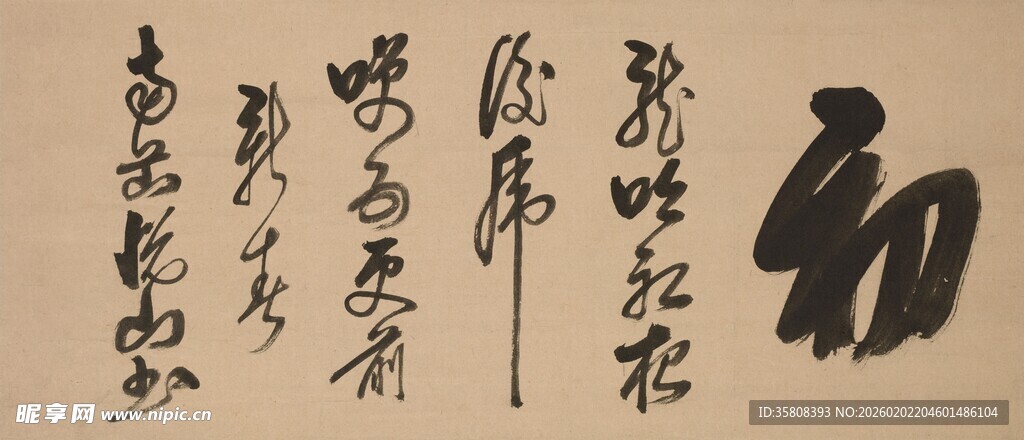 初
龍吟初夜
後虎
嘯五更前
新春
南岳悦山書
昵享网 www.nipic.cn
ID:35808393 NO:20260202204601486104